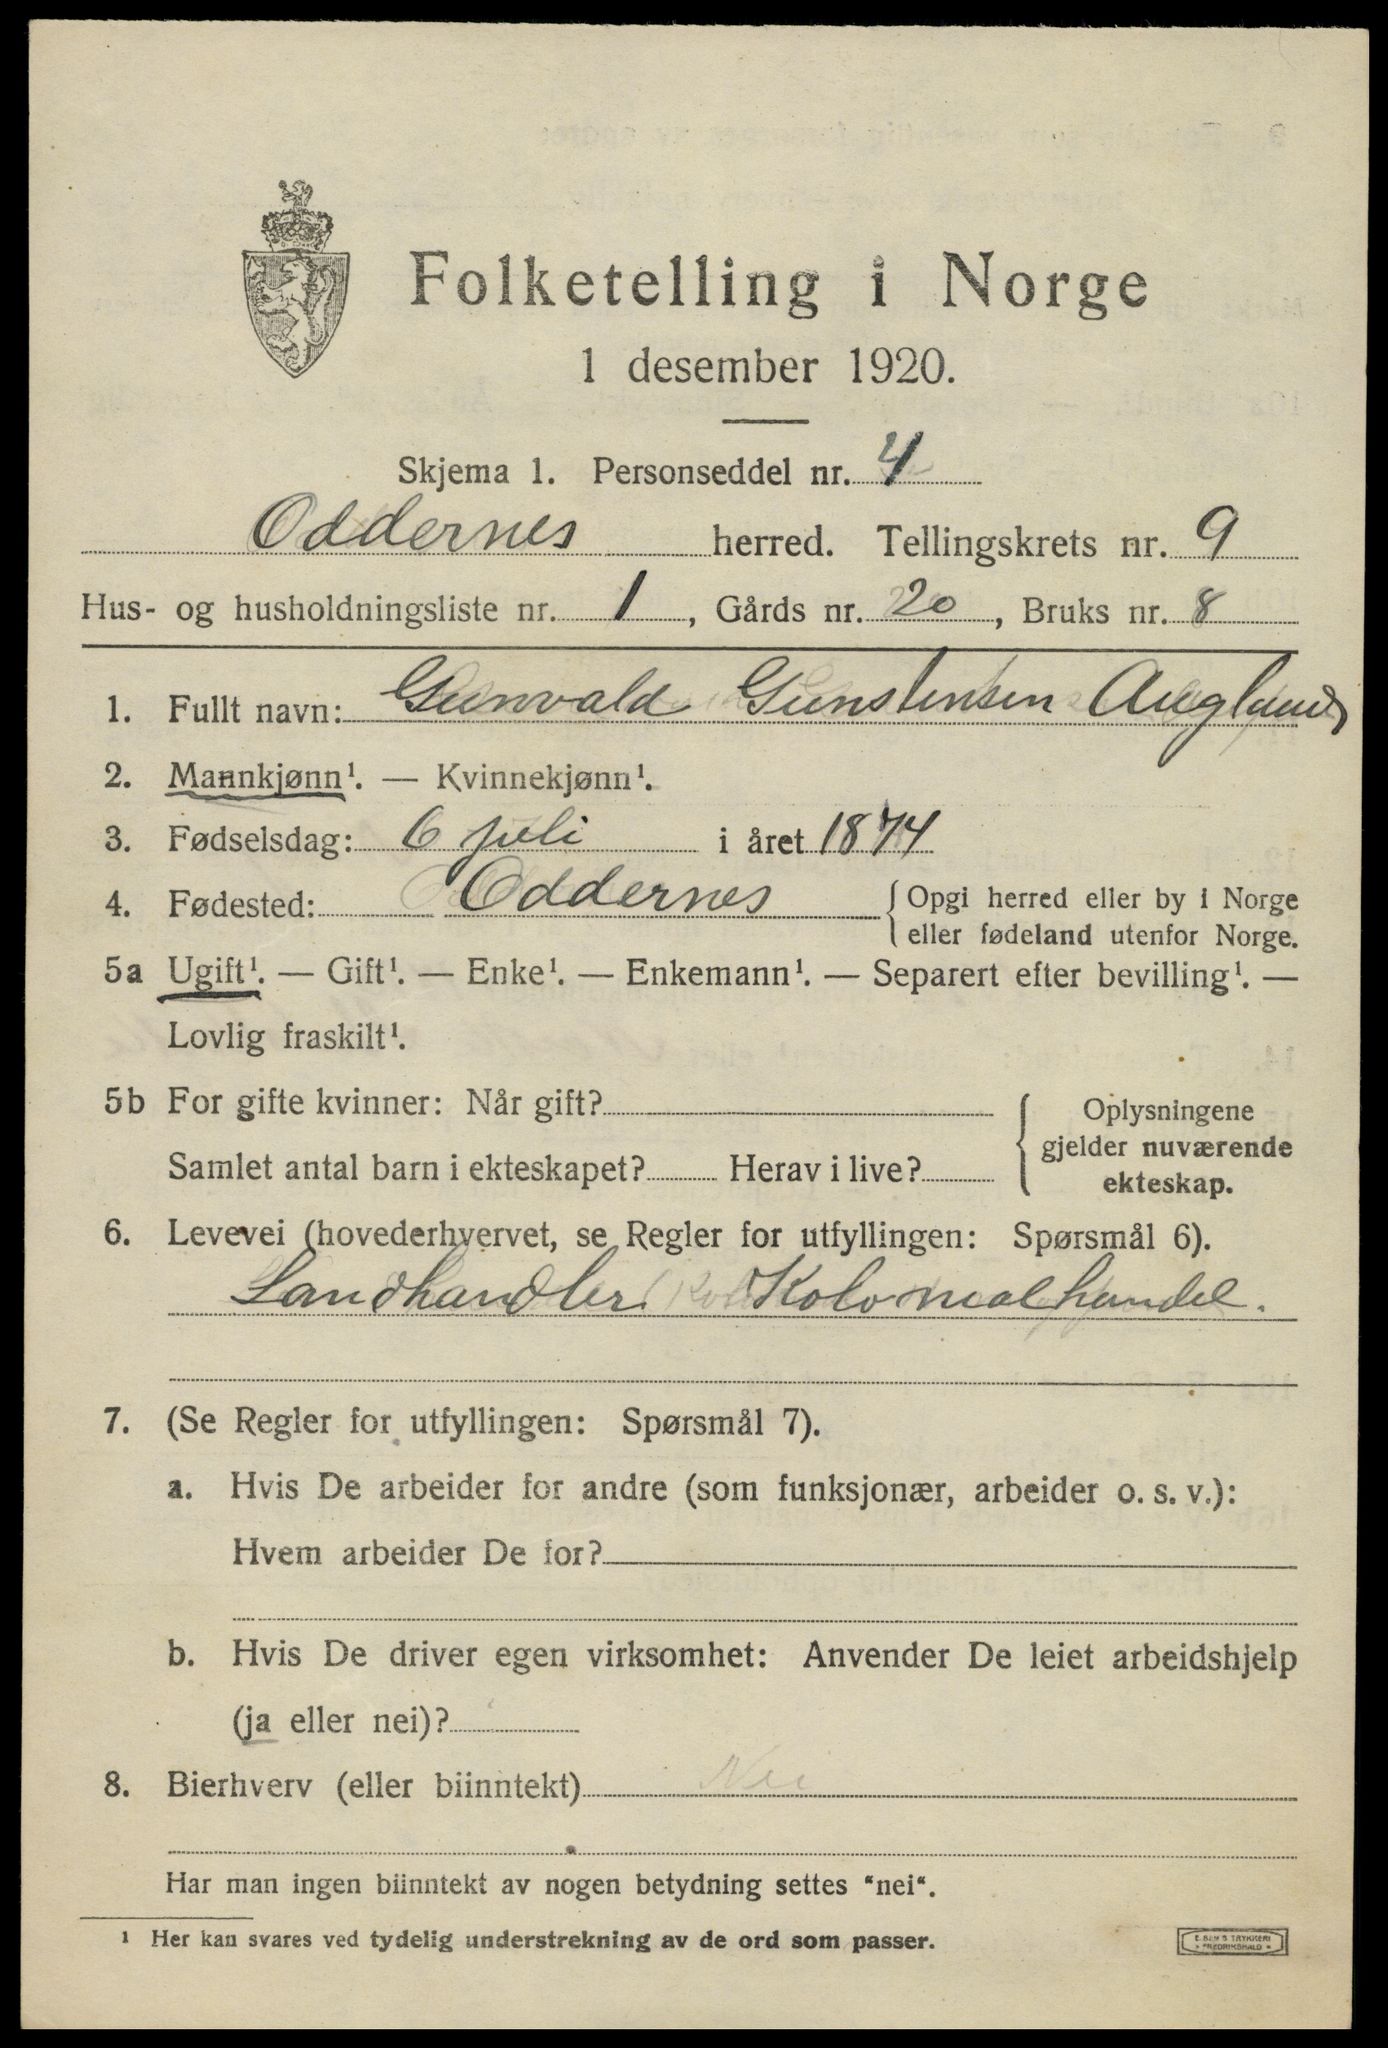 Folketelling i Norge
1 desember 1920.
Skjema 1. Personseddel nr. 4
Oddernes herred. Tellingskrets nr. 9
Hus- og husholdningsliste nr. 1, Gårds nr. 20, Bruks nr. 8
1. Fullt navn: Gunvald Gunstensen Augland
2. Mannkjønn¹. — Kvinnekjønn¹.
3. Fødselsdag: 6 juli i året 1874
4. Fødested: Oddernes { Opgi herred eller by i Norge
eller fødeland utenfor Norge.
5a Ugift¹. — Gift¹. — Enke¹. — Enkemann¹. — Separert efter bevilling¹. —
Lovlig fraskilt¹.
5b For gifte kvinner: Når gift?
Samlet antal barn i ekteskapet? Herav i live?
{ Oplysningene
gjelder nuværende
ekteskap.
6. Levevei (hovederhvervet, se Regler for utfyllingen: Spørsmål 6).
Landhandler Kolonialhandel.
7. (Se Regler for utfyllingen: Spørsmål 7).
a. Hvis De arbeider for andre (som funksjonær, arbeider o. s. v.):
Hvem arbeider De for?
b. Hvis De driver egen virksomhet: Anvender De leiet arbeidshjelp
(ja eller nei)?
8. Bierhverv (eller biinntekt) Nei
Har man ingen biinntekt av nogen betydning settes "nei".
¹ Her kan svares ved tydelig understrekning av de ord som passer.